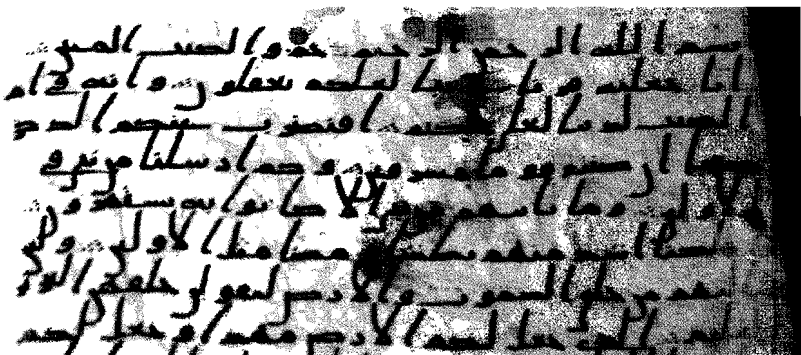 بسم الله الرحمن الرحيم حم والكتب المبين
انا جعلنه قرنا عربيا لعلكم تعقلون وانه في ام
الكتب لدينا لعلي حكيم افنضرب عنكم الذكر
صفحا ان كنتم قوما مسرفين وكم ارسلنا من نبي في
الاولين وما ياتيهم من نبي الا كانوا به يستهزون
فاهلكنا اشد منهم بطشا ومضى مثل الاولين ولئن
سالتهم من خلق السموت والارض ليقولن خلقهن العزيز
العليم الذي جعل لكم الارض مهدا وجعل لكم